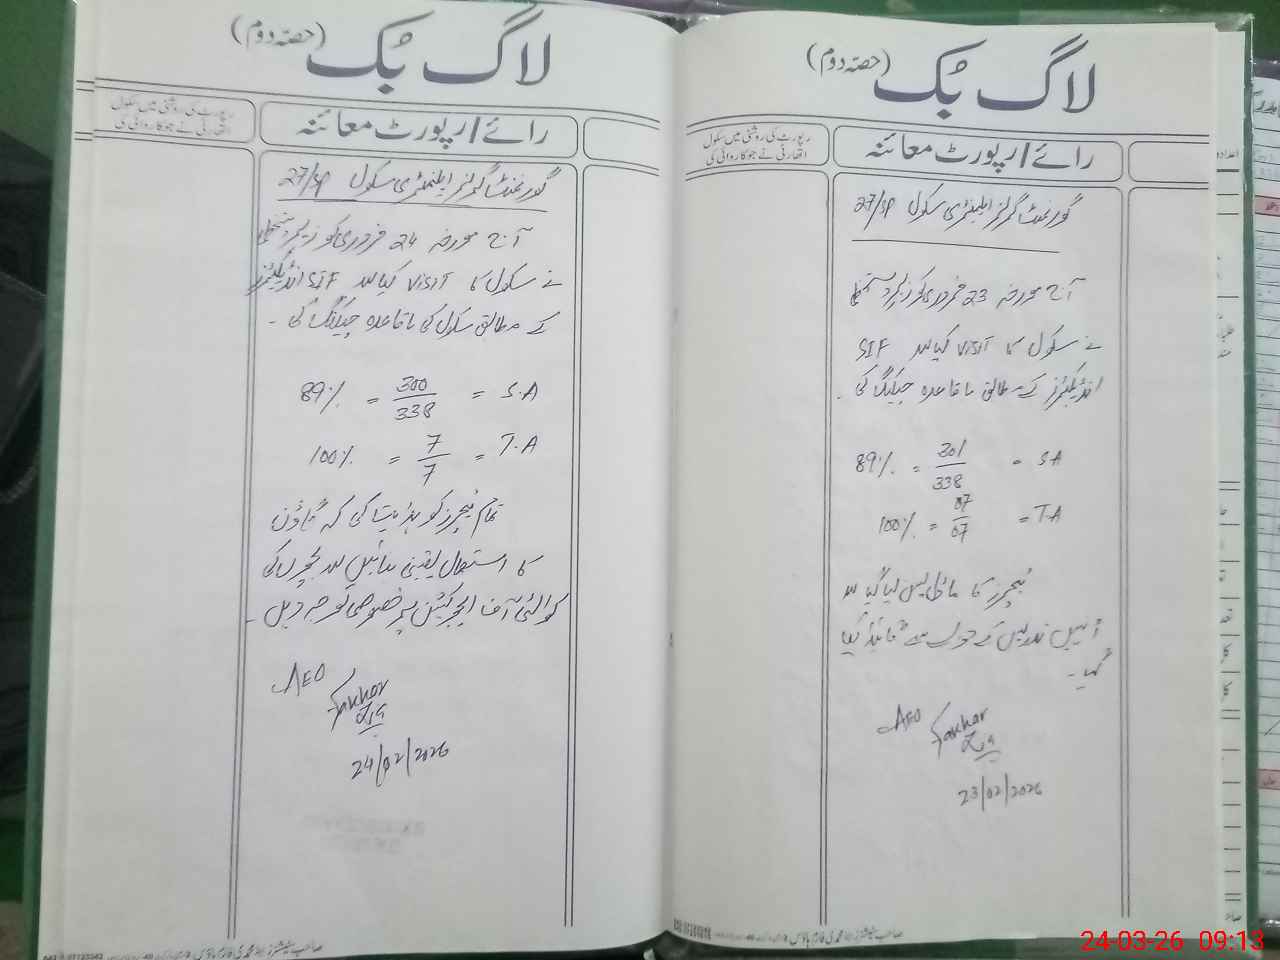 لاگ بُک (حصہ دوم)
رائے/رپورٹ معائنہ
رپورٹ کی روشنی میں سکول
اتھارٹی نے جو کاروائی کی
گورنمنٹ گرلز ایلیمنٹری سکول 27/SP
آج مورخہ 23 فروری کو زیر دستخطی
نے سکول کا visit کیا اور SIF
انڈیکیٹرز کے مطابق باقاعدہ چیکنگ کی۔
89% = 301/338 = S.A
100% = 07/07 = T.A
ٹیچرز کا ماڈل لیسن لیا گیا اور
انہیں تدریس کے حوالے سے گائیڈ کیا
گیا۔
AEO
Fakhar
Zia
23/02/2026
لاگ بُک (حصہ دوم)
رائے/رپورٹ معائنہ
رپورٹ کی روشنی میں سکول
اتھارٹی نے جو کاروائی کی
گورنمنٹ گرلز ایلیمنٹری سکول 27/SP
آج مورخہ 24 فروری کو زیر دستخطی
نے سکول کا visit کیا اور SIF انڈیکیٹرز
کے مطابق سکول کی باقاعدہ چیکنگ کی۔
89% = 300/338 = S.A
100% = 7/7 = T.A
تمام ٹیچرز کو ہدایت کی کہ گاؤن
کا استعمال یقینی بنائیں اور بچوں کی
کوالٹی آف ایجوکیشن پر خصوصی توجہ دیں۔
AEO
Fakhar
Zia
24/02/2026
24-03-26 09:13